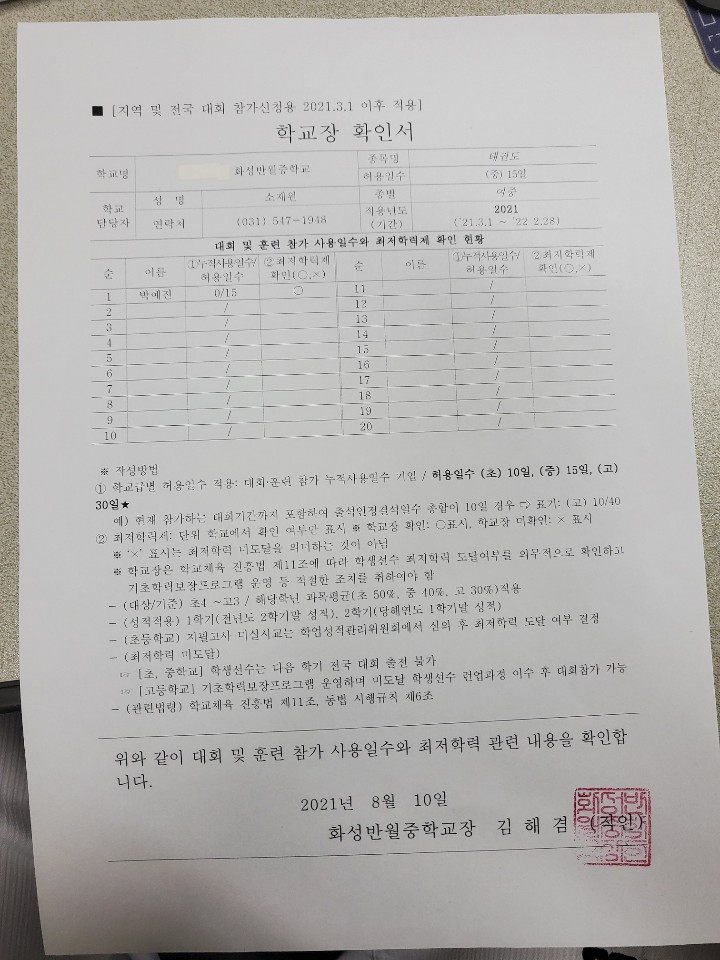 ■ [지역 및 전국 대회 참가신청용 2021.3.1 이후 적용]
학교장 확인서
학교명 화성반월중학교 종목명 태권도
허용일수 (중) 15일
학교 담당자 성 명 소재원 종별 여중
연락처 (031) 547-1948 적용년도 (기간) 2021 ('21.3.1 ~ '22.2.28)
대회 및 훈련 참가 사용일수와 최저학력제 확인 현황
순 이름 ①누적사용일수/허용일수 ②최저학력제 확인(○,×) 순 이름 ①누적사용일수/허용일수 ②최저학력제 확인(○,×)
1 박예진 0/15 ○ 11 /
2 / 12 /
3 / 13 /
4 / 14 /
5 / 15 /
6 / 16 /
7 / 17 /
8 / 18 /
9 / 19 /
10 / 20 /
※ 작성방법
① 학교급별 허용일수 적용: 대회·훈련 참가 누적사용일수 기입 / 허용일수 (초) 10일, (중) 15일, (고)
30일★
예) 현재 참가하는 대회기간까지 포함하여 출석인정결석일수 총합이 10일 경우 ⇨ 표기: (고) 10/40
② 최저학력제: 단위 학교에서 확인 여부만 표시 ※ 학교장 확인: ○표시, 학교장 미확인: × 표시
※ '×' 표시는 최저학력 미도달을 의미하는 것이 아님
※ 학교장은 학교체육 진흥법 제11조에 따라 학생선수 최저학력 도달여부를 의무적으로 확인하고
기초학력보장프로그램 운영 등 적절한 조치를 취하여야 함
- (대상/기준) 초4 ~고3 / 해당학년 과목평균(초 50%, 중 40%, 고 30%)적용
- (성적적용) 1학기(전년도 2학기말 성적), 2학기(당해연도 1학기말 성적)
- (초등학교) 지필고사 미실시교는 학업성적관리위원회에서 심의 후 최저학력 도달 여부 결정
- (최저학력 미도달)
⇨ [초, 중학교] 학생선수는 다음 학기 전국 대회 출전 불가
⇨ [고등학교] 기초학력보장프로그램 운영하며 미도달 학생선수 런업과정 이수 후 대회참가 가능
- (관련법령) 학교체육 진흥법 제11조, 동법 시행규칙 제6조
위와 같이 대회 및 훈련 참가 사용일수와 최저학력 관련 내용을 확인합
니다.
2021년 8월 10일
화성반월중학교장 김 해 겸 (직인)